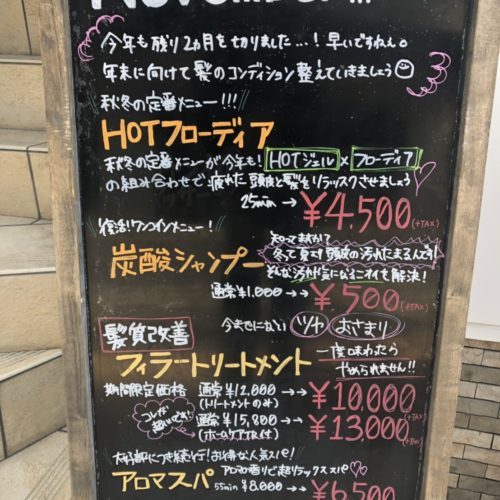 November...!!!
今年も残り2ヵ月を切りました…！早いですねぇ。
年末に向けて髪のコンディション整えていきましょう
秋冬の定番メニュー!!!
HOTフローディア
秋冬の定番メニューが今年も! HOTジェル×フローディア
の組み合わせで疲れた頭皮と髪をリラックスさせましょう
25min→¥4,500(+TAX)
復活!ワンコインメニュー!
知ってますか?
炭酸シャンプー 冬って意外と頭皮の汚れたまるんです!
そんな汚れが気になるニオイを解決!
通常¥1,000→→¥500(+TAX)
髪質改善 今までにない ツヤ おさまり
フィラートリートメント 一度味わったら
やめられません!!
期間限定価格 通常¥12,000→→¥10,000(+TAX)
(トリートメントのみ)
コレが超いいです! 通常¥15,800→→¥13,000(+TAX)
(ホームケア付)
大好評につき続行!お得な人気スパ!
アロマスパ アロマの香りで超リラックススパ♡
55min通常¥8,000→→¥6,500